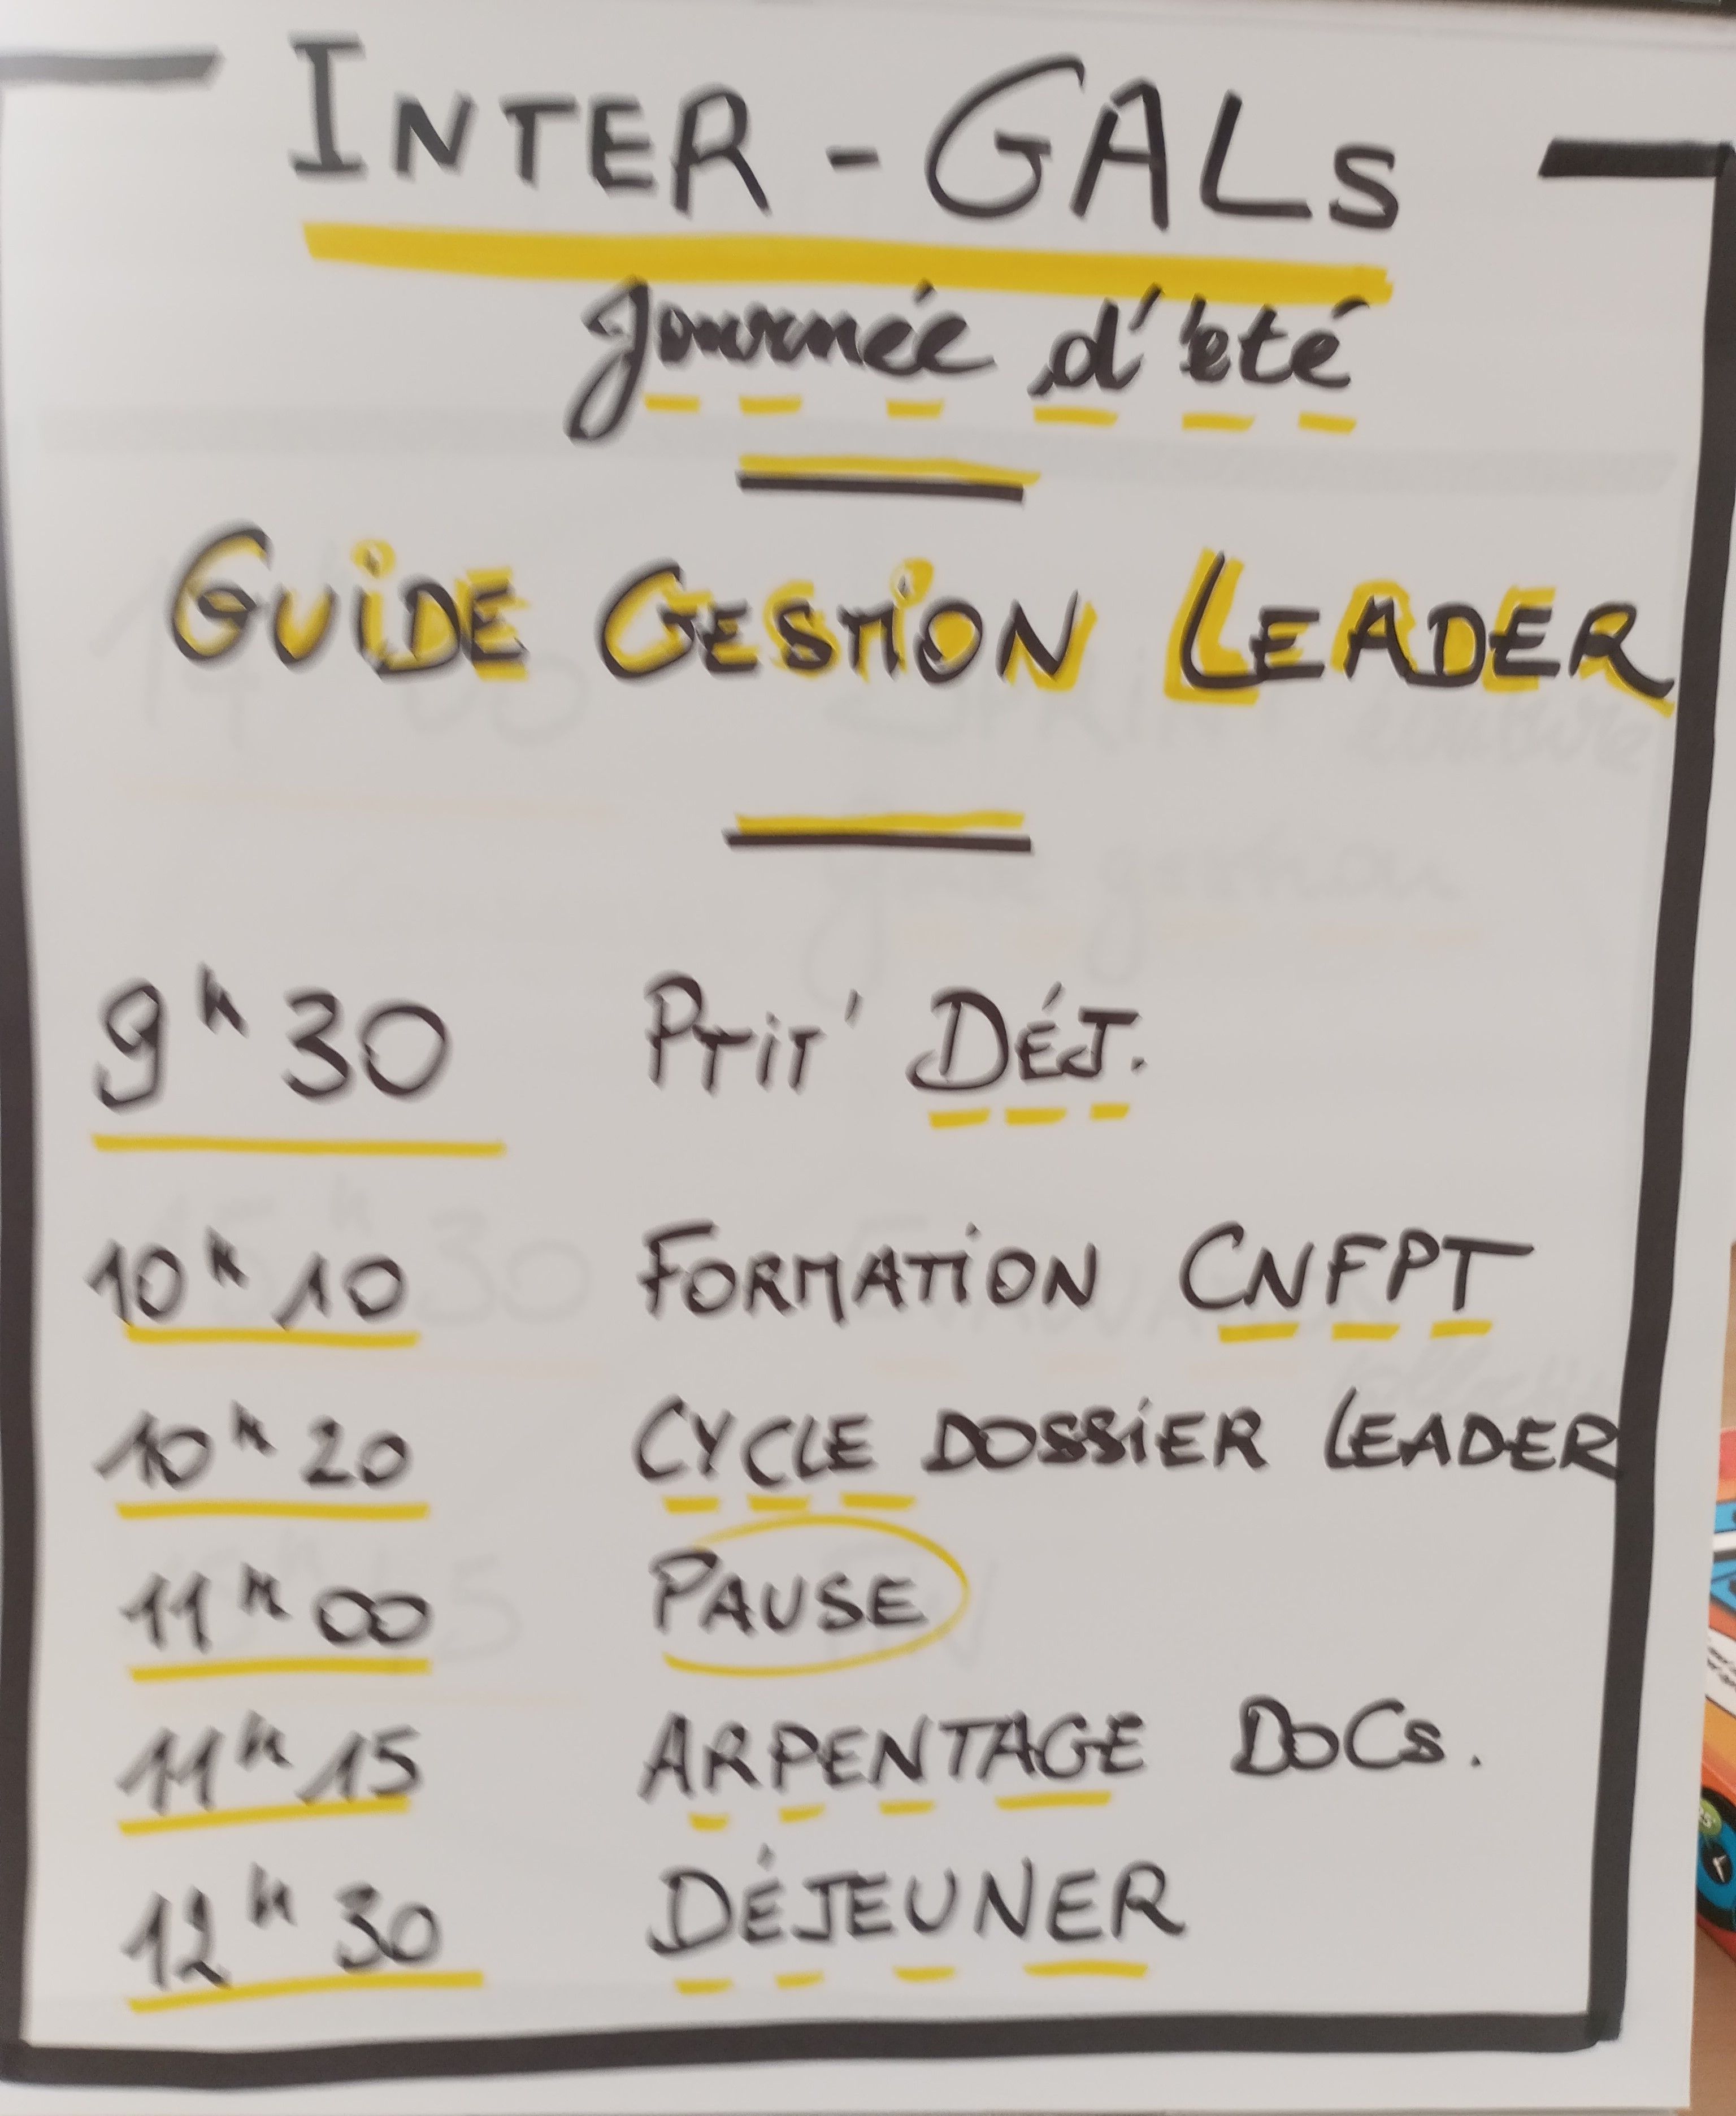 INTER - GALs
Journée d'été
GUiDE GESTiON LEADER
9h30 PTiT' DÉJ.
10h10 FORMATiON CNFPT
10h20 CYCLE DOSSiER LEADER
11h00 PAUSE
11h15 ARPENTAGE DOCs.
12h30 DÉJEUNER